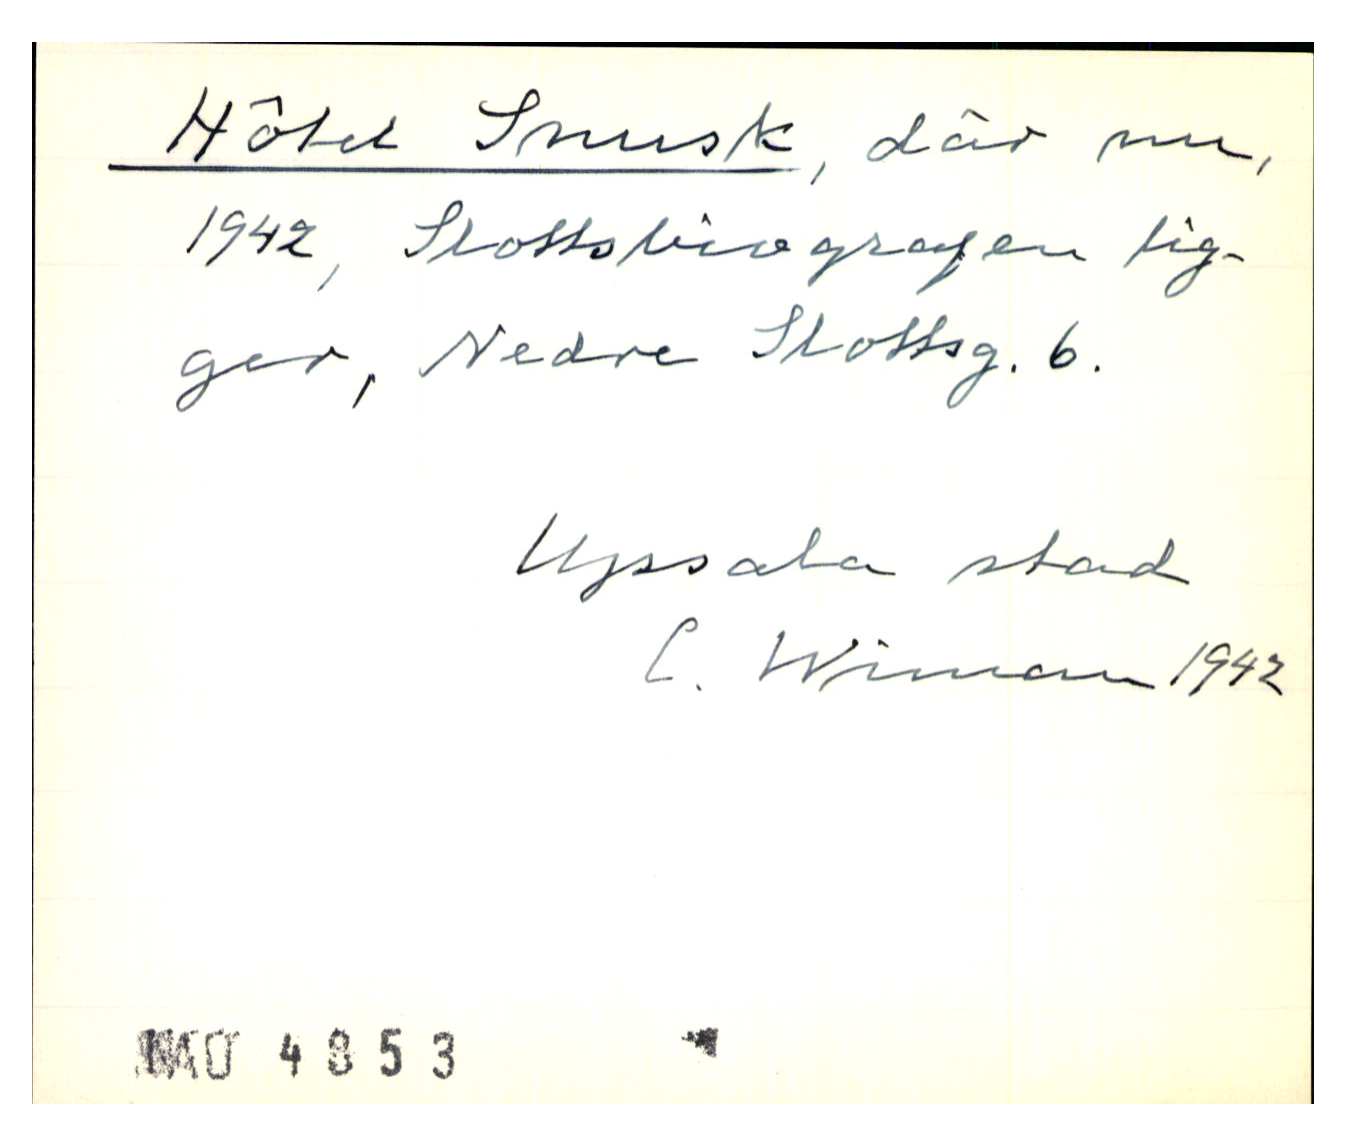 Hôtel Snusk, där nu,
1942, Slottsbiografen lig-
ger, Nedre Slottsg. 6.
Uppsala stad
C. Wiman 1942
4853